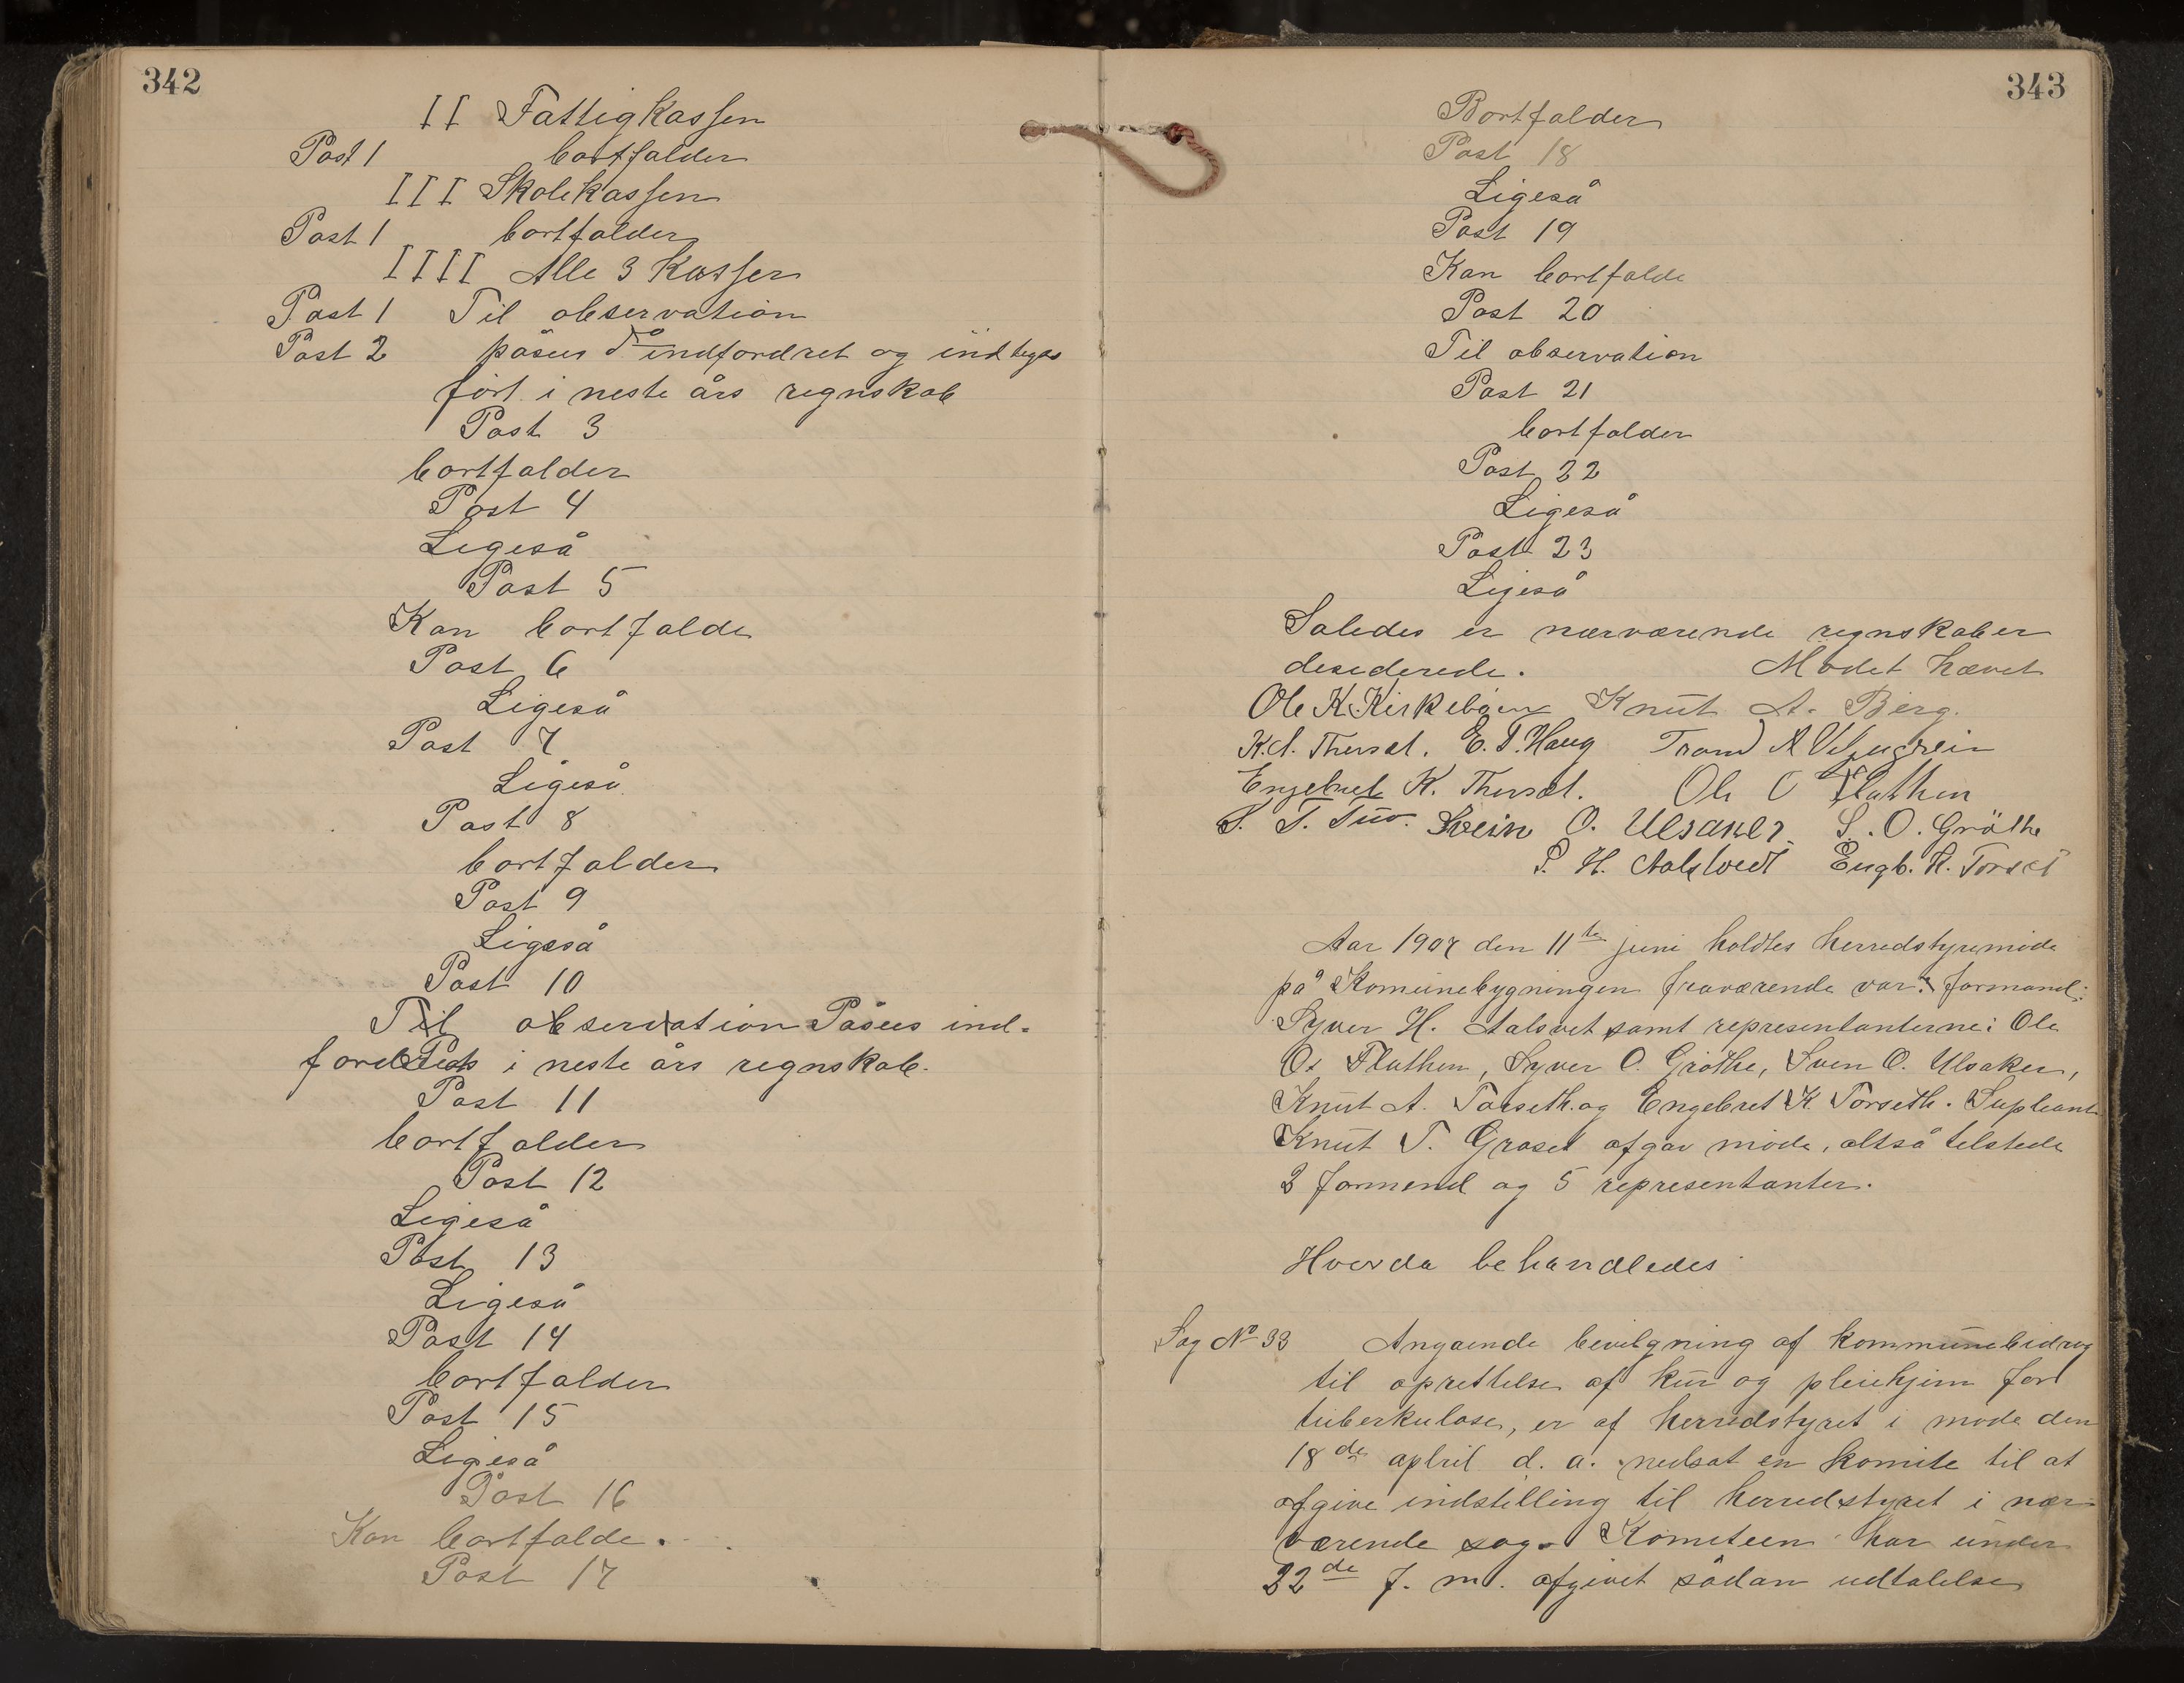 342
II Fattigkassen
Post 1 bortfalder
III Skolekassen
Post 1 bortfalder
IIII Alle 3 Kasser
Post 1 Til observation
Post 2 påsees indfordret og indtegts
ført i neste års regnskab
Post 3
bortfalder
Post 4
Ligeså
Post 5
Kan bortfalde
Post 6
Ligeså
Post 7
Ligeså
Post 8
bortfalder
Post 9
Ligeså
Post 10
Til observation Påsees ind-
i neste års regnskab.
Post 11
bortfalder
Post 12
Ligeså
Post 13
Ligeså
Post 14
bortfalder
Post 15
Ligeså
Post 16
Kan bortfalde.
Post 17
343
Bortfalder
Post 18
Ligeså
Post 19
Kan bortfalde
Post 20
Til observation
Post 21
bortfalder
Post 22
Ligeså
Post 23
Ligeså
Saledes er nærværende regnskaber
desiderede. Mødet hævet
Ole K. Kirkebøen Knut A. Berg.
K. A. Thorset. E. T. Haug Trond A
Engebret K. Thorset. Ole O Flathen
S. T. Tuv. Svein O. Ulsaker S. O. Grøthe
S. H. Aalstvedt Engb. K. Torset
Aar 1907 den 11te juni holdtes herredstyremøde
på Komunebygningen fraværende var: formand:
Syver H. Aalsvet samt representanterne: Ole
O. Flathen, Syver O. Grøthe, Sven O. Ulsaker,
Knut A. Torseth og Engebret K. Torseth. Supleant
Knut T. Graset afgav møde, altså tilstede
3 formend og 5 representanter.
Hvorda behandledes
Sag No 33 Angaende bevilgning af kommunebidrag
til oprettelse af kur og pleiehjem for
tuberkulose, er af herredstyret i møde den
18de april d. a. nedsat en komite til at
afgive indstilling til herredstyret i nær-
værende sag. Kometeen har under
22de f. m. afgivet sådan udtalelse